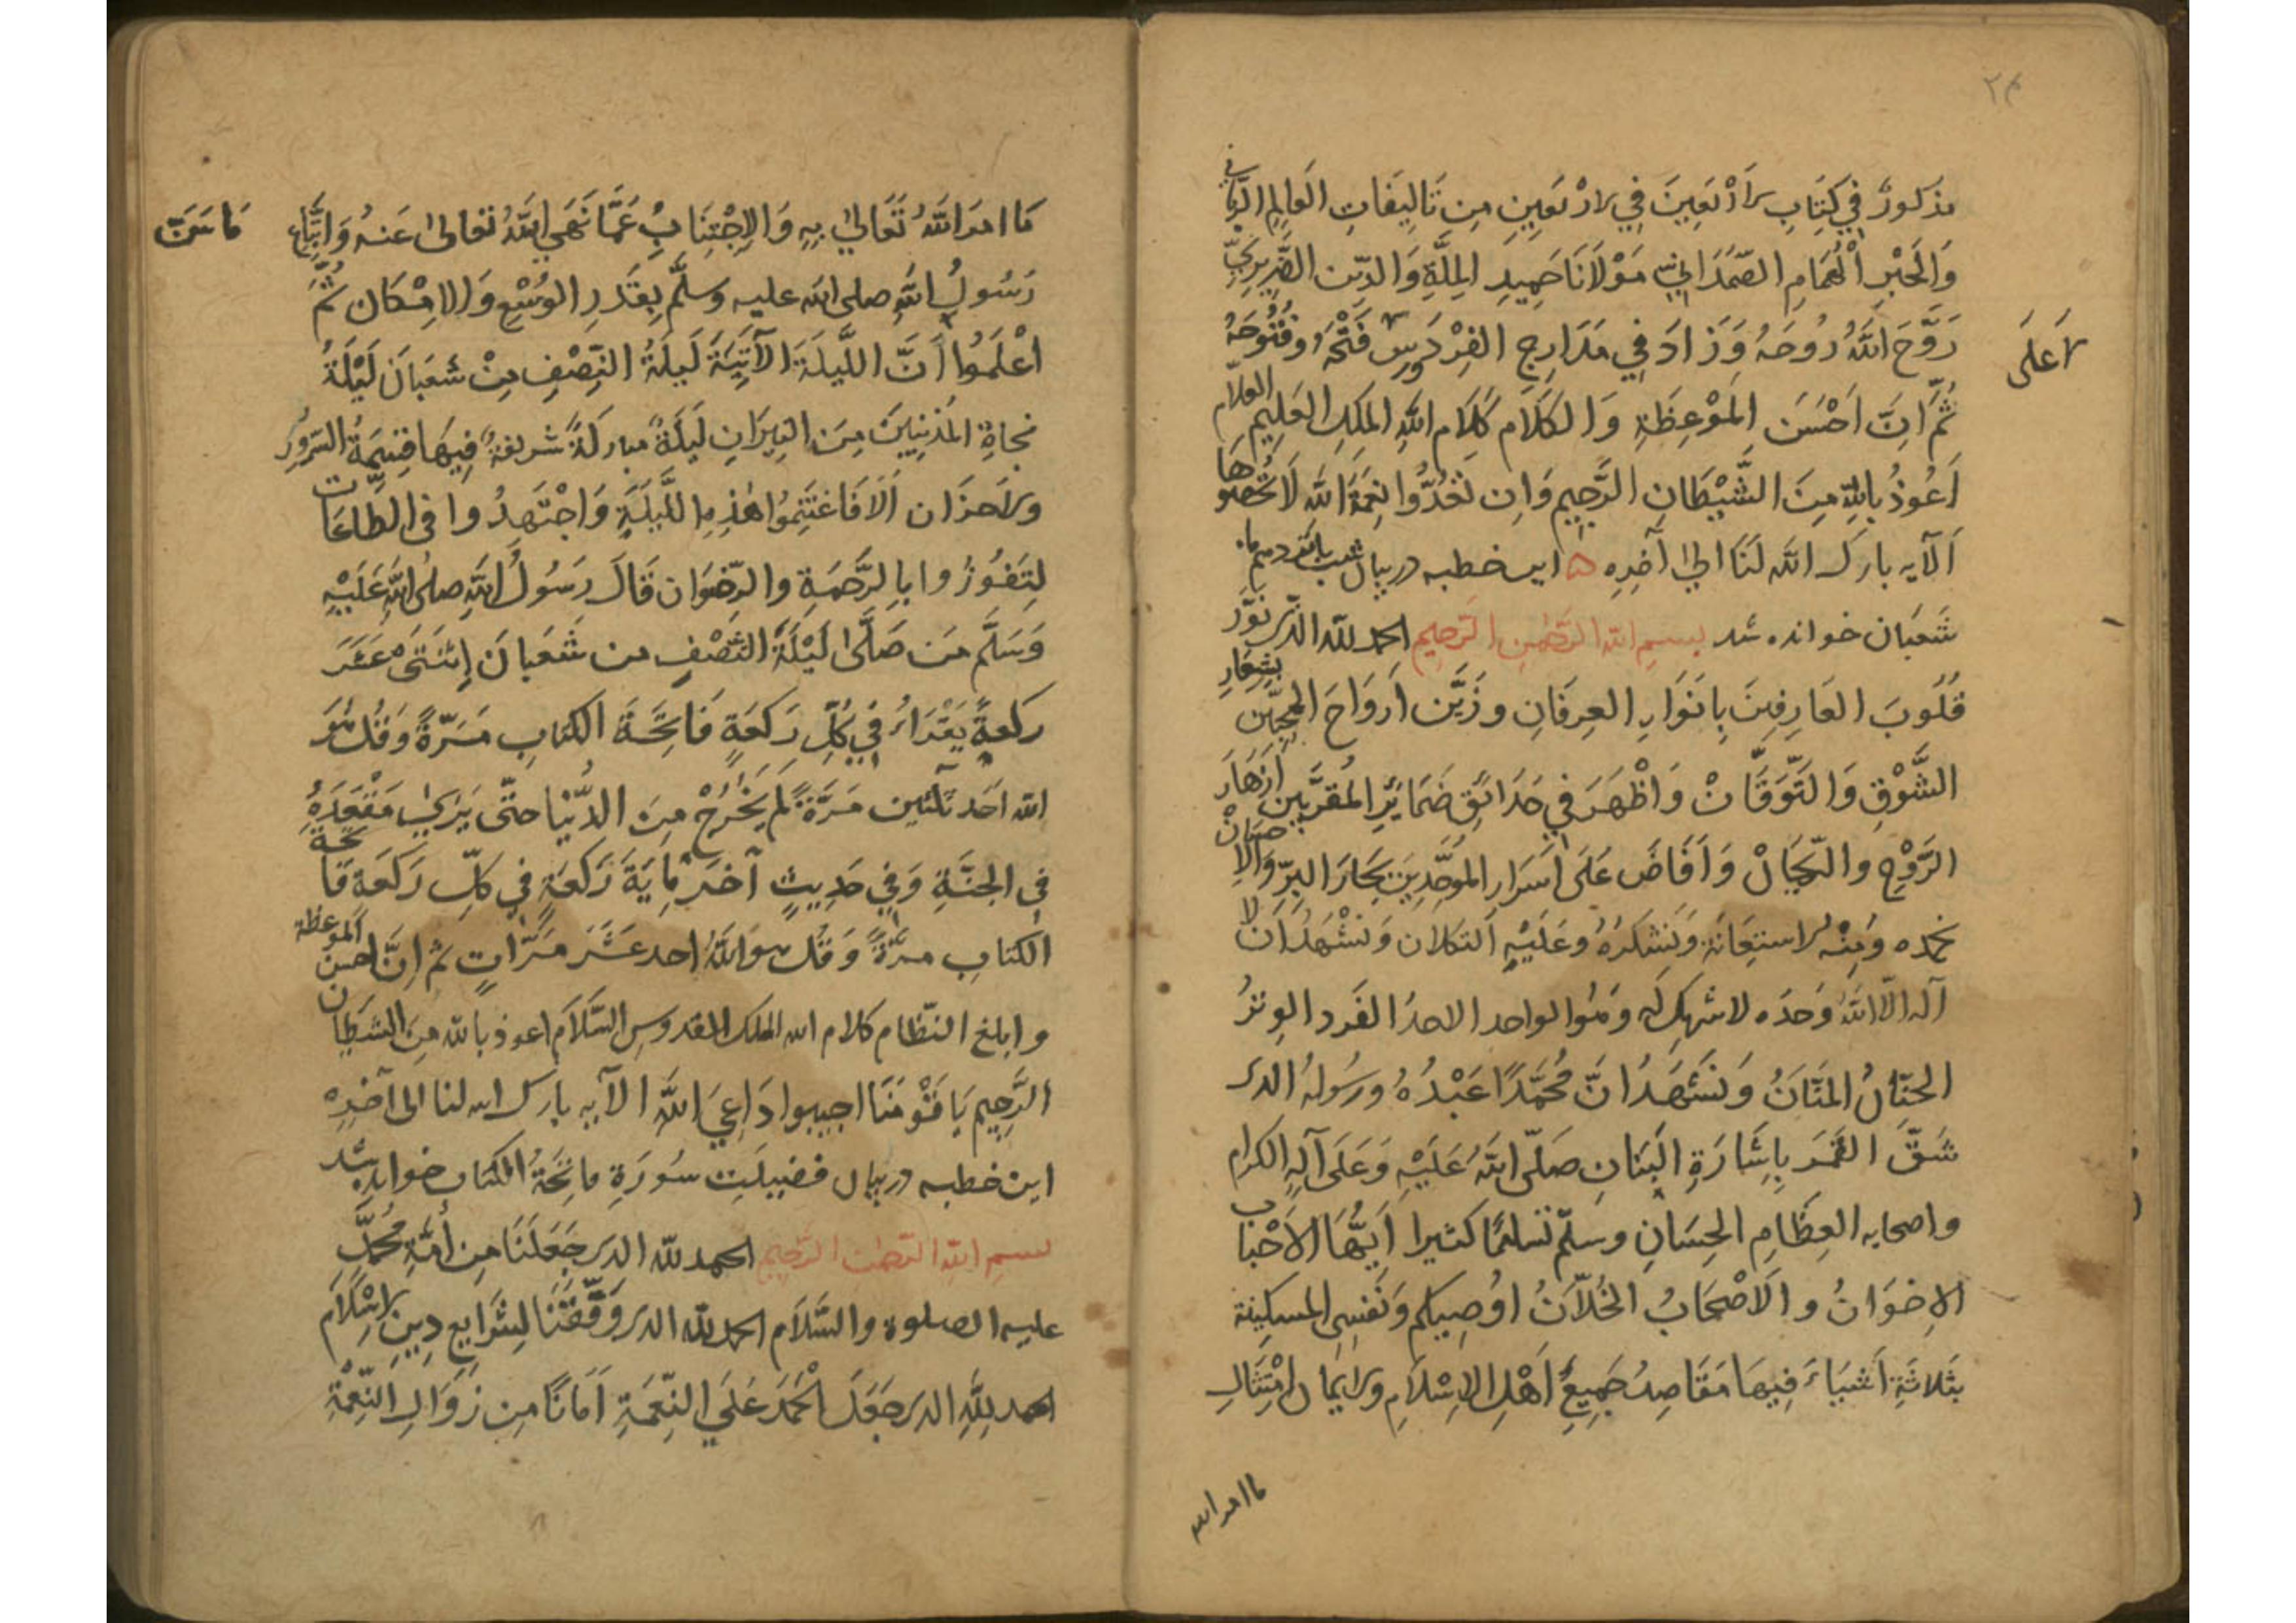 ٢٤
مذكورٌ في كتاب الاربعين في الاربعين من تاليفات العالم الربانى
والحبر الهمام الصمداني مولانا حميد الملة والدين الضريري
روّح الله روحه وزاد في مدارج الفردوس فتحه وفتوحه
اعلى
ثم ان احسن الموعظة والكلام كلام الله الملك العليم العلام
اعوذ بالله من الشيطان الرجيم وان تعدوا نعمة الله لا تحصوها
الآيه بارك الله لنا الى آخره اين خطبه در بيان شب پانزدهم ماه
شعبان خوانده شد بسم الله الرحمن الرحيم الحمد لله الذى نوّر
قلوب العارفين بانوار العرفان وزيّن ارواح المحبّين بشعار
الشوق والتوقان واظهر في حدائق ضمائر المقربين ازهار
الروح والريحان وافاض على اسرار الموحدين بحار البرّ والاحسان
نحمده ومنه الاستعانة ونشكره وعليه التكلان ونشهد ان لا
آله الا الله وحده لا شريك له وهو الواحد الاحد الفرد الوتر
الحنّان المنّان ونشهد انّ محمّدًا عبده ورسوله الذى
شقّ القمر باشارة البنان صلّى الله عليه وعلى آله الكرام
واصحابه العظام الحسان وسلّم تسليمًا كثيرا ايّها الاحباب
الاخوان والاصحاب الخلّان اوصيكم ونفسى المسكينة
بثلاثة اشياء فيها مقاصد جميع اهل الاسلام والايمان امتثال
ما امر الله
ما امر الله تعالى به والاجتناب عمّا نهى الله تعالى عنه واتباع ما سنّ
رسول الله صلى الله عليه وسلّم بقدر الوسع والامكان ثم
اعلموا انّ الليلة الآتية ليلة النصف من شعبان ليلة
نجاة المذنبين من النيران ليلة مباركة شريفة فيها قسمة السرور
والاحزان الا فاغتنموا هذه الليلة واجتهدوا فى الطاعات
لتفوزوا بالرحمة والرضوان قال رسول الله صلى الله عليه
وسلّم من صلّى ليلة النصف من شعبان اثنتى عشر
ركعةً يقراء في كلّ ركعةٍ فاتحة الكتاب مرّةً وقل هو
الله احد ثلثين مرّةً لم يخرج من الدّنيا حتّى يرى مقعده
في الجنّة وفي حديثٍ آخر ماية ركعةٍ في كلّ ركعة فاتحة
الكتاب مرّةً وقل هو الله احد عشر مرّاتٍ ثم انّ احسن الموعظة
وابلغ النظام كلام الله الملك القدوس السّلام اعوذ بالله من الشيطان
الرجيم يا قومنا اجيبوا داعى الله الآيه بارك الله لنا الى آخره
اين خطبه در بيان فضيلت سورة فاتحة الكتاب خوانده شد
بسم الله الرحمن الرحيم الحمد لله الذى جعلنا من امّة محمّد
عليه الصلوة والسّلام الحمد لله الذى وفّقنا لشرايع دين الاسلام
الحمد لله الذى جعل الحمد على النعمة امانًا من زوال النعمة